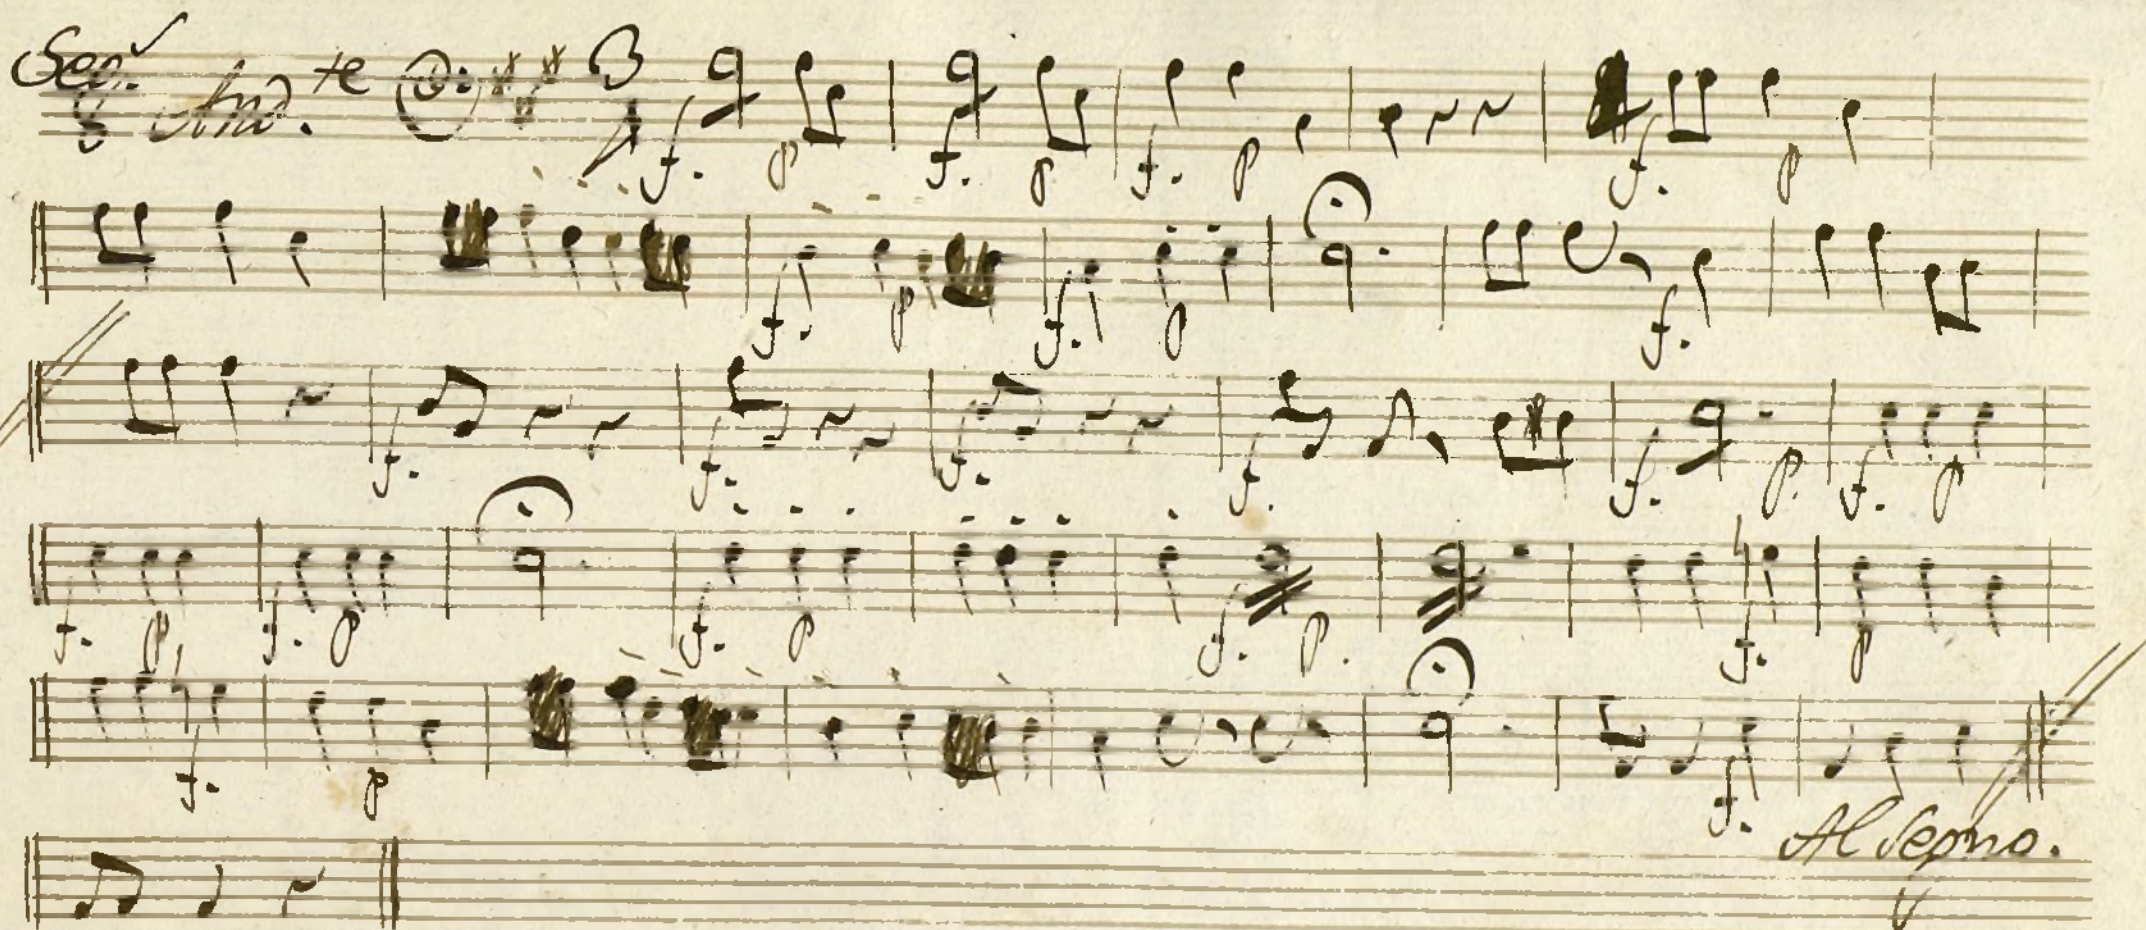 Seg.
And.te 3 f. p f. p f. p f. p
f. p f. p f.
f. f. f. f. f. p. f. p
f. p f. p f. p f. p. f. p
f. p f.
Al Segno.